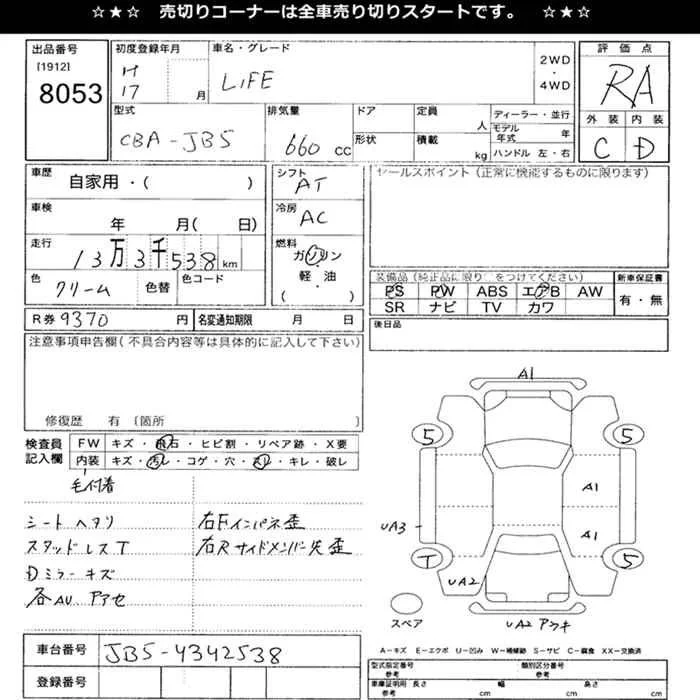 ☆★☆ 売切りコーナーは全車売り切りスタートです。 ☆★☆
出品番号
[1912]
8053
初度登録年月
H
17 月
車名・グレード
LIFE
2WD
・
4WD
評価点
RA
外装 内装
C D
型式
CBA-JB5
排気量
660 cc
ドア
形状
定員
人
積載
kg
ディーラー・並行
モデル年式 年
ハンドル 左・右
車歴
自家用・( )
シフト
AT
セールスポイント(正常に機能するものに限ります)
車検
年 月( 日)
冷房
AC
走行
13万3千538km
燃料
ガソリン
・
軽・油
( )
色
クリーム
色替
色コード
装備品(純正品に限り○をつけてください)
PS PW ABS エアB AW
SR ナビ TV カワ
新車保証書
有・無
R券 9370 円
名変通知期限 月 日
後日品
注意事項申告欄(不具合内容等は具体的に記入して下さい)
修復歴 有 (箇所 )
検査員
記入欄
FW キズ・飛石・ヒビ割・リペア跡・X要
内装 キズ・汚レ・コゲ・穴・スレ・キレ・破レ
毛付着
シートヘタリ
スタッドレスT
Dミラーキズ
各AU.アアセ
右Fインパネ歪
右Rサイドメンバー先歪
A1
5
5
A1
A1
UA3
T
5
UA2
スペア
UA2 アワキ
A-キズ E-エクボ U-凹み W-補修跡 S-サビ C-腐食 XX-交換済
車台番号
JB5-4342538
登録番号
型式指定番号
類別区分番号
参考
参考
車庫証明用 長さ 幅 高さ
参考 cm cm cm